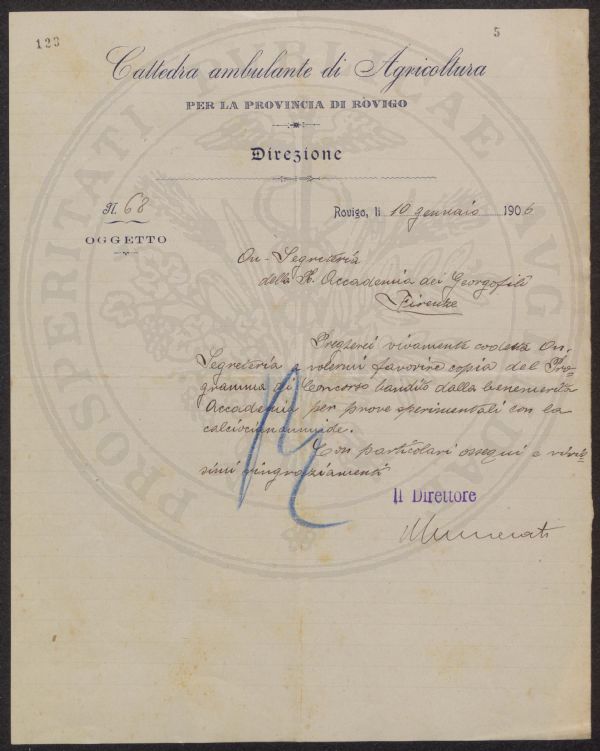 123
5
Cattedra ambulante di Agricoltura
PER LA PROVINCIA DI ROVIGO
Direzione
N. 68
Rovigo, li 10 gennaio 1906
OGGETTO
On. Segreteria
della R. Accademia dei Georgofili
Firenze
Pregherei vivamente codesta On.
Segreteria a volermi favorire copia del Pro-
gramma di Concorso bandito dalla benemerita
Accademia per prove sperimentali con la
calciocianamide.
Con particolari ossequi e vivis
simi ringraziamenti
Il Direttore
Munerati
PROSPERITATI PUBLICAE AUGENDAE